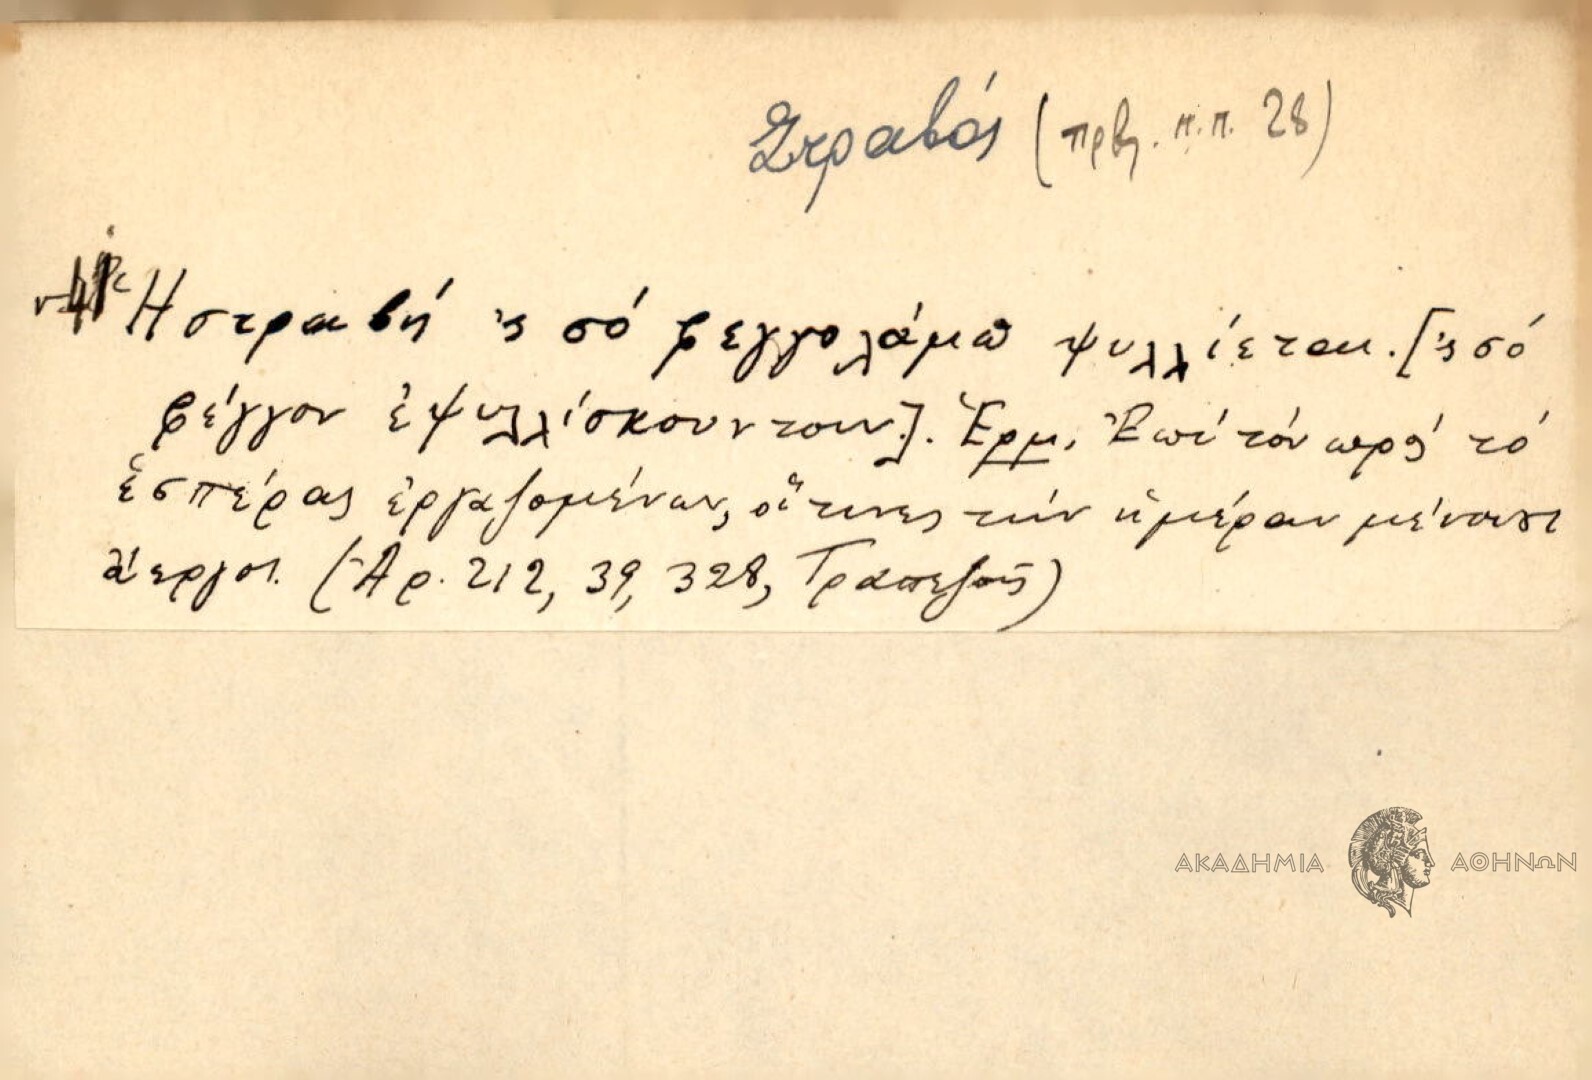 Στραβός (πρβλ. π.π. 28)
Ἡ στραβή 'ς σό φεγγολάμπ ψυλλίεται. ['ς σό
φέγγον ἐψυλλίσκουντον]. Ἑρμ. Ἐπί τῶν πρός τό
ἑσπέρας ἐργαζομένων, οἵτινες τήν ἡμέραν μένουσι
ἄεργοι. (Ἀρ. 212, 39, 328, Τραπεζοῦς)
ΑΚΑΔΗΜΙΑ ΑΘΗΝΩΝ